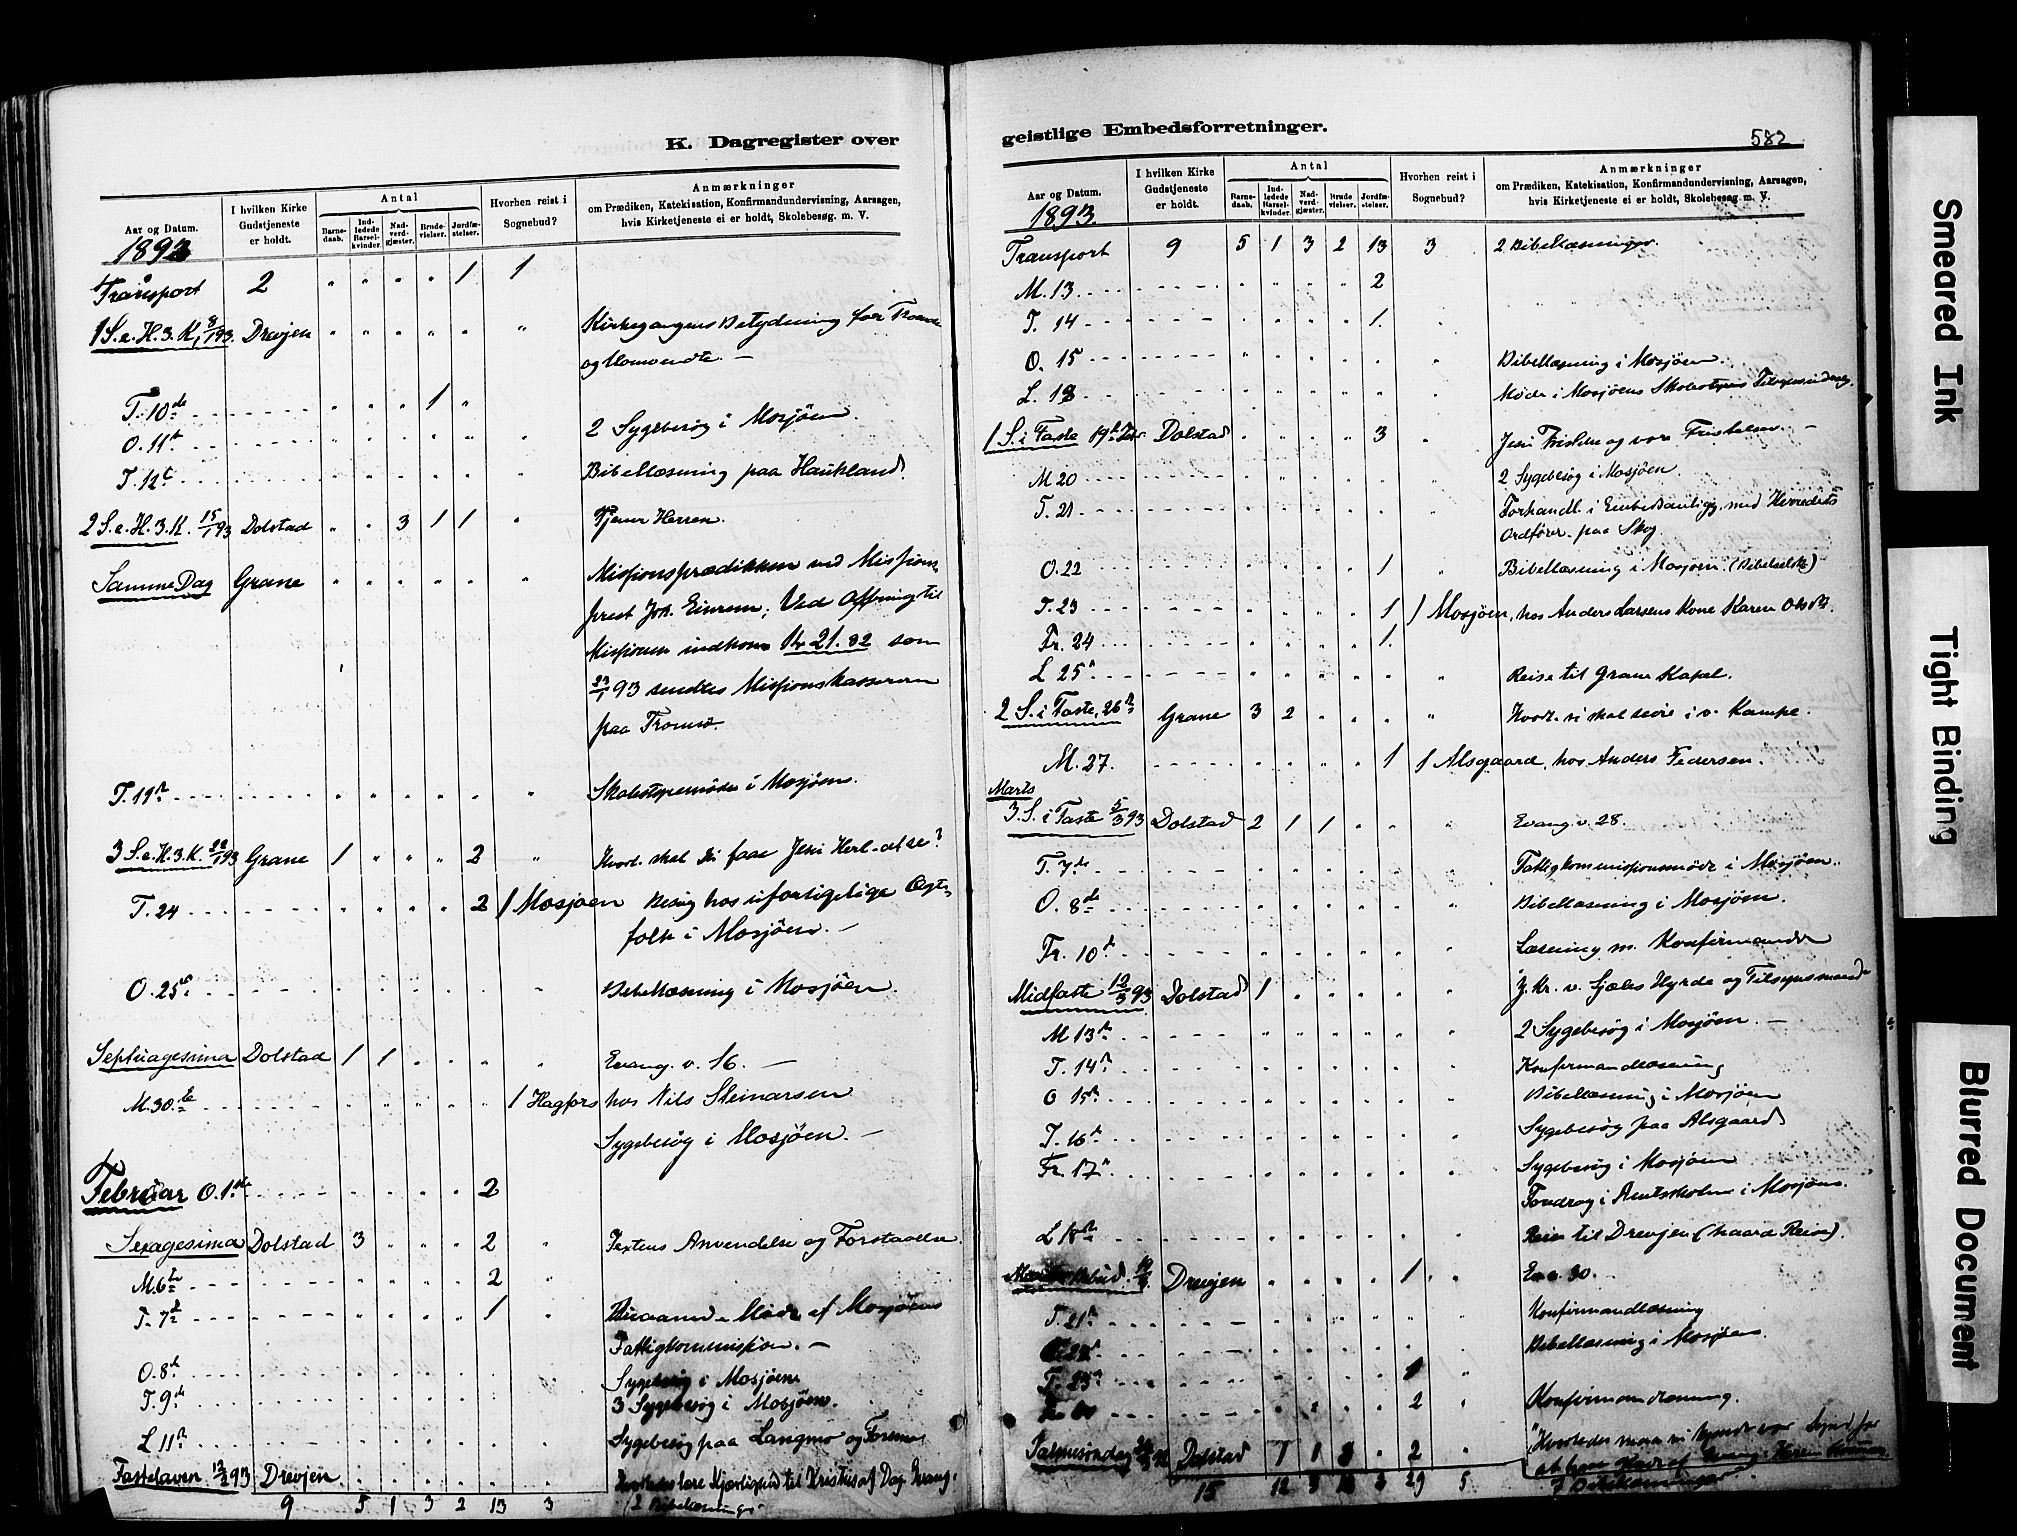 K. Dagregister over
Aar og Datum.
I hvilken Kirke Gudstjeneste er holdt.
Antal
Barnedaab.
Indledede Barselkvinder.
Nadverdgjæster.
Brudevielser.
Jordfæstelser.
Hvorhen reist i Sognebud?
Anmærkninger
om Prædiken, Katekisation, Konfirmandundervisning, Aarsagen,
hvis Kirketjeneste ei er holdt, Skolebesøg. m. V.
1893
Transport 2 " " " " 1 1
1 S. e. H. 3. K. 8/1 93. Drevjen " " " " " " Kirkegangens Betydning for Troende
og Uomvendte. —
T. 10de 1
O. 11te 2 Sygebesøg i Mosjøen.
T. 12te Bibellæsning paa Haukland.
2 S. e. H. 3. K. 15/1 93 Dolstad " " 3 1 1 " Tjener Herren.
Samme Dag Grane " " " " " " Missionsprædiken ved Missions-
prest Joh. Einrem; Ved Ofring til
Missionen indkom Kr 21.82 som
23/1 93 sendtes Missionskasseren
paa Tromsø.
T. 19de Skolestyremøde i Mosjøen.
3 S. e. H. 3. K. 22/1 93 Grane 1 " " " 2 "
T. 24 2 1 Mosjøen Besøg hos uforligelige Ægte-
folk i Mosjøen. —
O. 25de Bibellæsning i Mosjøen.
Septuagesima Dolstad 1 1 " " " " Evang. v. 16. —
M. 30te 1 Hagfors hos Nils Steinarsen
Sygebesøg i Mosjøen. —
Februar O. 1ste 2
Sexagesima Dolstad 3 " " " 2 " Textens Anvendelse og Forstaaelse
M. 6te 2
T. 7de 1 Møde af Mosjøens
Fattigkommission. —
O. 8de Sygebesøg i Mosjøen
T. 9de 3 Sygebesøg i Mosjøen.
L 11te Sygebesøg paa Langmo og Forsmo
Fastelaven 12/2 93 Drevjen Kjærlighed til Kristus af Dag. Evang.
9 5 1 3 2 13 3 (2 Bibellæsninger
geistlige Embedsforretninger.
582
Aar og Datum.
I hvilken Kirke Gudstjeneste er holdt.
Antal
Barnedaab.
Indledede Barselkvinder.
Nadverdgjæster.
Brudevielser.
Jordfæstelser.
Hvorhen reist i Sognebud?
Anmærkninger
om Prædiken, Katekisation, Konfirmandundervisning, Aarsagen,
hvis Kirketjeneste ei er holdt, Skolebesøg. m. V.
1893
Transport 9 5 1 3 2 13 3 2 Bibellæsninger.
M. 13 2
T. 14 1.
O. 15 Bibellæsning i Mosjøen.
L. 18 Møde i Mosjøens Skolestyres Tilsynsudvalg.
1 S. i Faste 19de Febr. Dolstad " " " " 3 " Jesu Fristelse og vore Fristelser. —
M 20 2 Sygebesøg i Mosjøen.
T. 21 Forhandl. i Embedsanligg. med Herredets
Ordfører paa Skog
O. 22 1 Bibellæsning i Mosjøen. (Bibelselsk.)
T. 23 1 1 Mosjøen, hos Anders Larsens Kone Karen
Fr. 24 1.
L 25de Reise til Grane Kapel.
2 S. i Faste, 26de Grane 3 2 " " " " Hvorl. vi skal seire i v. Kampe.
M. 27. 1 1 Alsgaard, hos Anders Pedersen.
Marts
3. S. i Faste 5/3 93 Dolstad 2 1 1 " " " Evang. v. 28.
T. 7de Fattigkommissionsmøde i Mosjøen.
O. 8de Bibellæsning i Mosjøen.
Fr. 10de Læsning m. Konfirmander
Midfaste 12/3 93 Dolstad 1 " " " " " J. Kr. v. Sjæles Hyrde og Tilsynsmand
M 13de 2 Sygebesøg i Mosjøen. —
T. 14de Konfirmandlæsning
O 15de Bibellæsning i Mosjøen
T. 16de Sygebesøg paa Alsgaard
Fr. 17de Sygebesøg i Mosjøen
Foredrag i Amtsskolen i Mosjøen.
L 18de Reise til Drevjen (haard Reise).
19/3 Drevjen " " " " 1 " Ev. v. 30.
T. 21de Konfirmandlæsning
O. 22de Bibellæsning i Mosjøen.
T. 23de 1
2 Konfirmandlæsning.
Palmesøndag Dolstad 1 1 2
15 12 29 5 7 Bibellæsninger
Smeared Ink
Tight Binding
Blurred Document